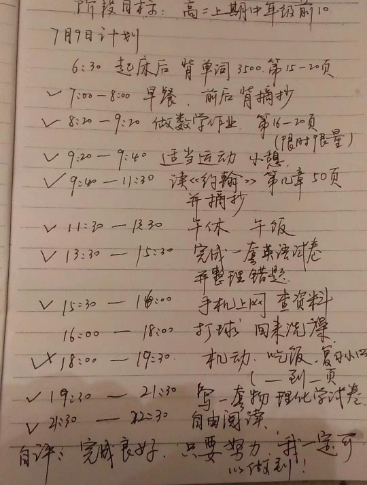 阶段目标: 高二上期中年级前10
7月9日计划
6:30 起床后 背单词3500.第15-20页
✓ 7:00-8:00 早餐、前后背摘抄
✓ 8:20-9:20 做数学作业 第16-20页
(限时限量)
✓ 9:20-9:40 适当运动 小憩
✓ 9:40-11:30 读《约翰》 第 章 50页
并摘抄
✓ 11:30-13:30 午休 午饭
✓ 13:30-15:30 完成一套英语试卷
并整理错题
✓ 15:30-16:00 手机上网 查资料
16:00-18:00 打球 回来洗澡
✓✗ 18:00-19:30 机动、吃饭、
(一到二页
✓ 19:30-21:30 写一套物理化学试卷
✓ 21:30-22:30 自由阅读
自评: 完成良好. 只要努力, 我一定可
以做到!